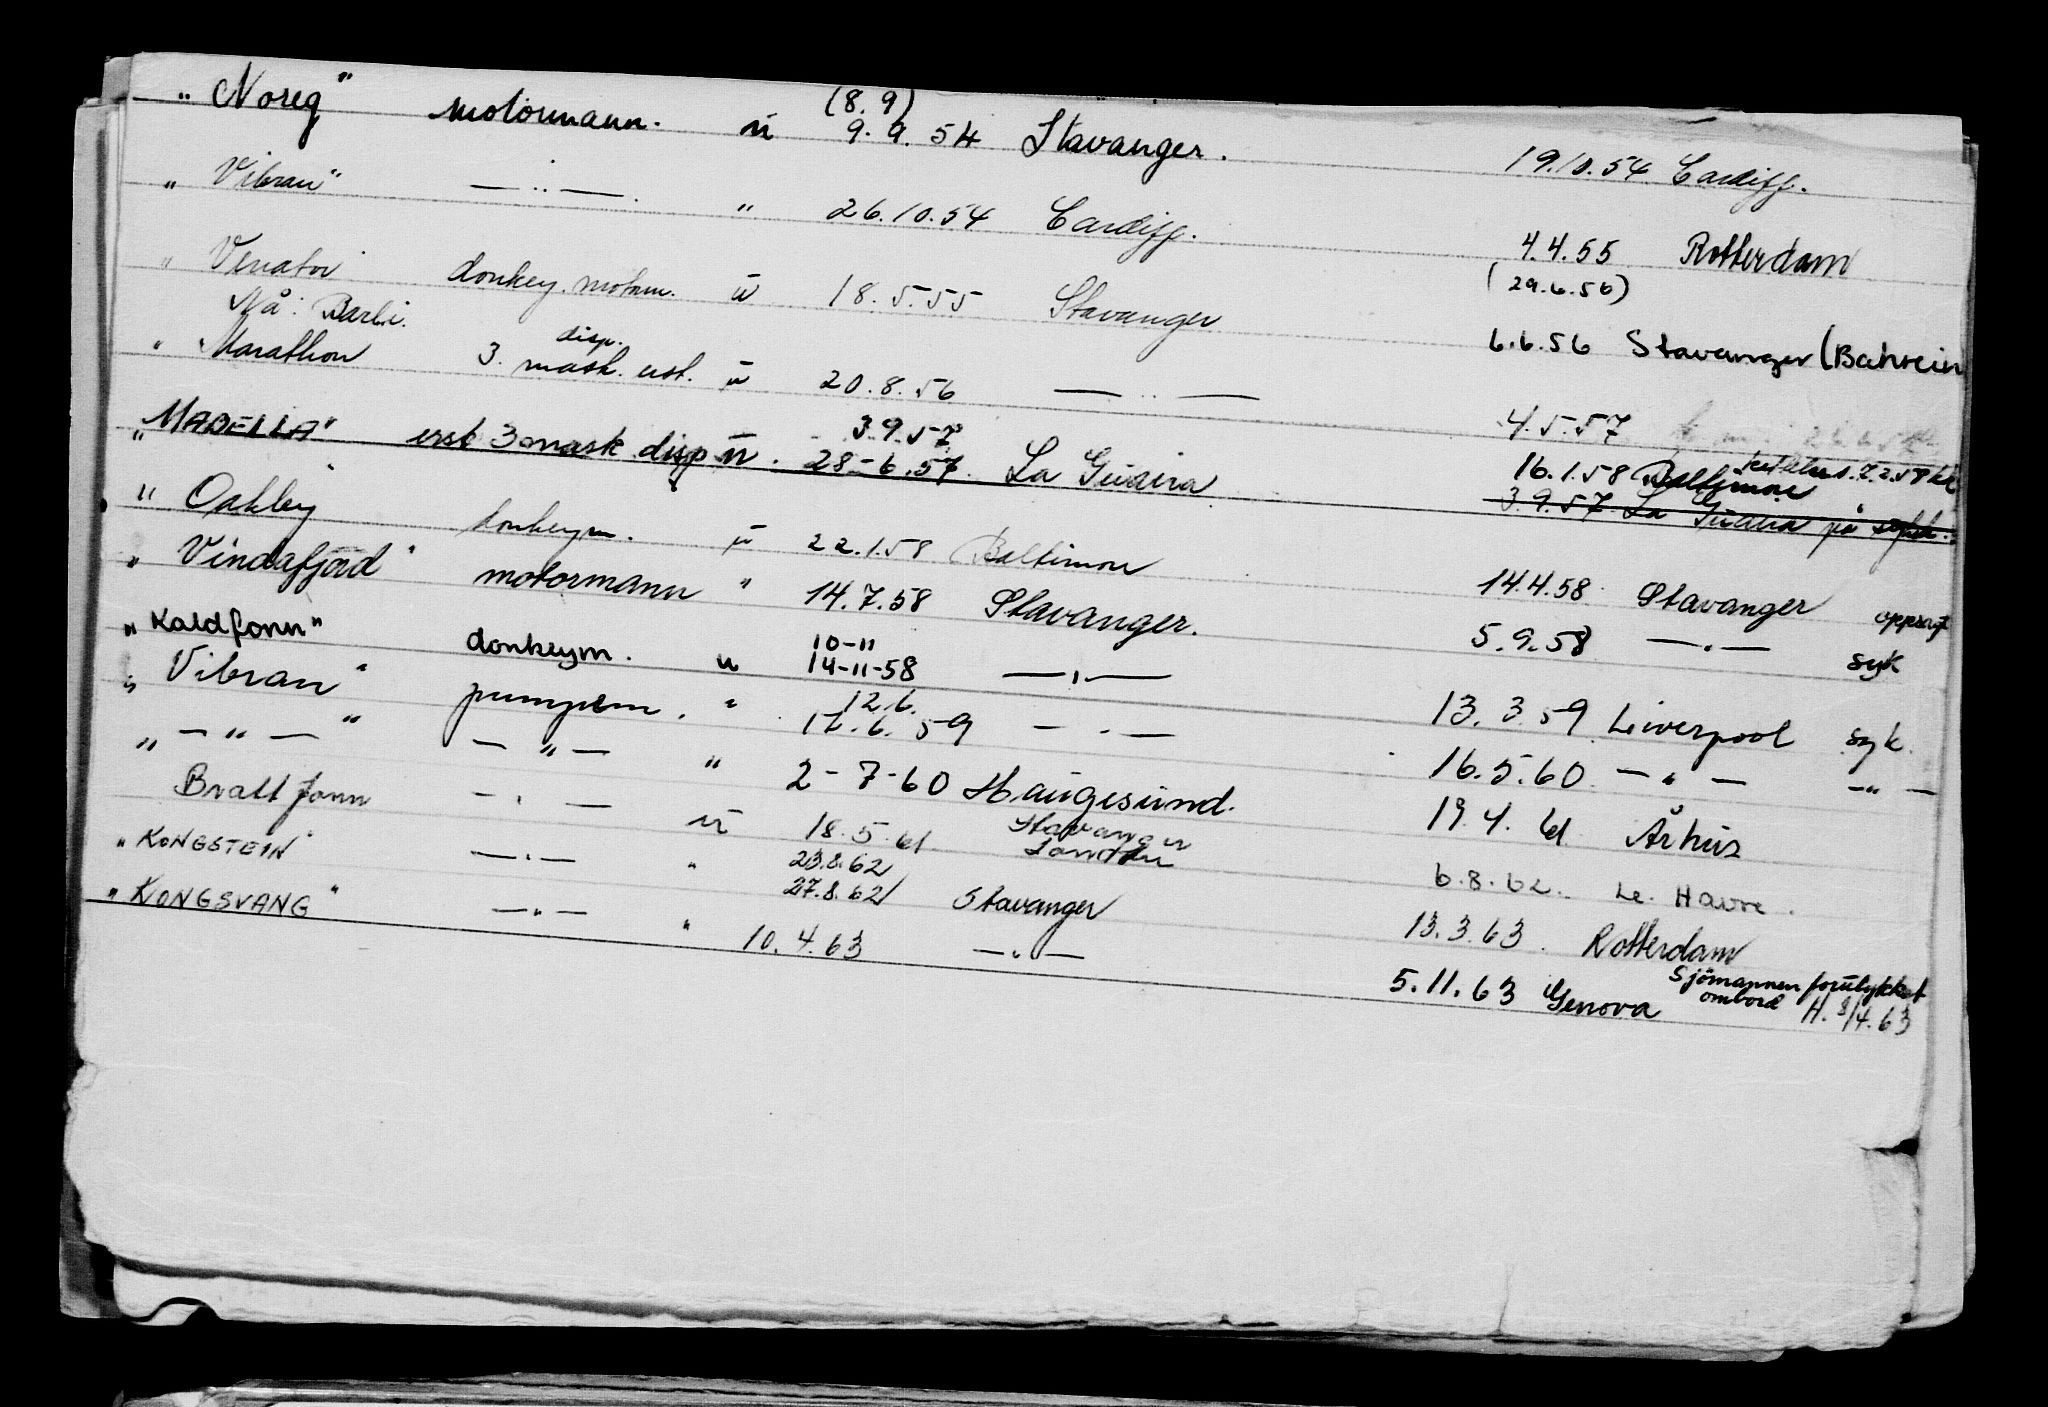 „ Noreg" motormann. u (8.9) 9.9.54 Stavanger. 19.10.54 Cardiff.
„ Vibran" — „ —. " 26.10.54 Cardiff. 4.4.55 Rotterdam
" Venator donkey. motorm. u 18.5.55 Stavanger (29.6.56)
Nå: Barbi. 6.6.56 Stavanger (Bahrein
" Marathon 3. mask. disp. ass. u 20.8.56 — „ — 4.5.57
„ MABELLA" 3 mask disp u. 3.9.57 28-6.57 La Guaira 16.1.58 Baltimore 7.2.58
3.9.57 La Guaira på
" Oakley donkeym. u 22.1.58 Baltimore 14.4.58 Stavanger oppsagt
„ Vindafjord" motormann " 14.7.58 Stavanger. 5.9.58 — „ — syk
„ Kaldfonn" donkeym. u 10-11 14-11-58 — „ — 13.3.59 Liverpool syk.
„ Vibran" pumpem. " 12.6. 17.6.59 — „ — 16.5.60 — „ — — „ —
„ — „ — " — „ — " 2-7-60 Haugesund. 19.4.61 Århus
Brattfonn — „ — u 18.5.61 Stavanger London 6.8.62. Le. Havre.
„ KONGSTEIN" — „ — " 23.8.62 27.8.62 Stavanger 13.3.63. Rotterdam
„ KONGSVANG" — „ — " 10.4.63 — „ — 5.11.63 Genova Sjömannen forulykket ombord H. 8/4.63